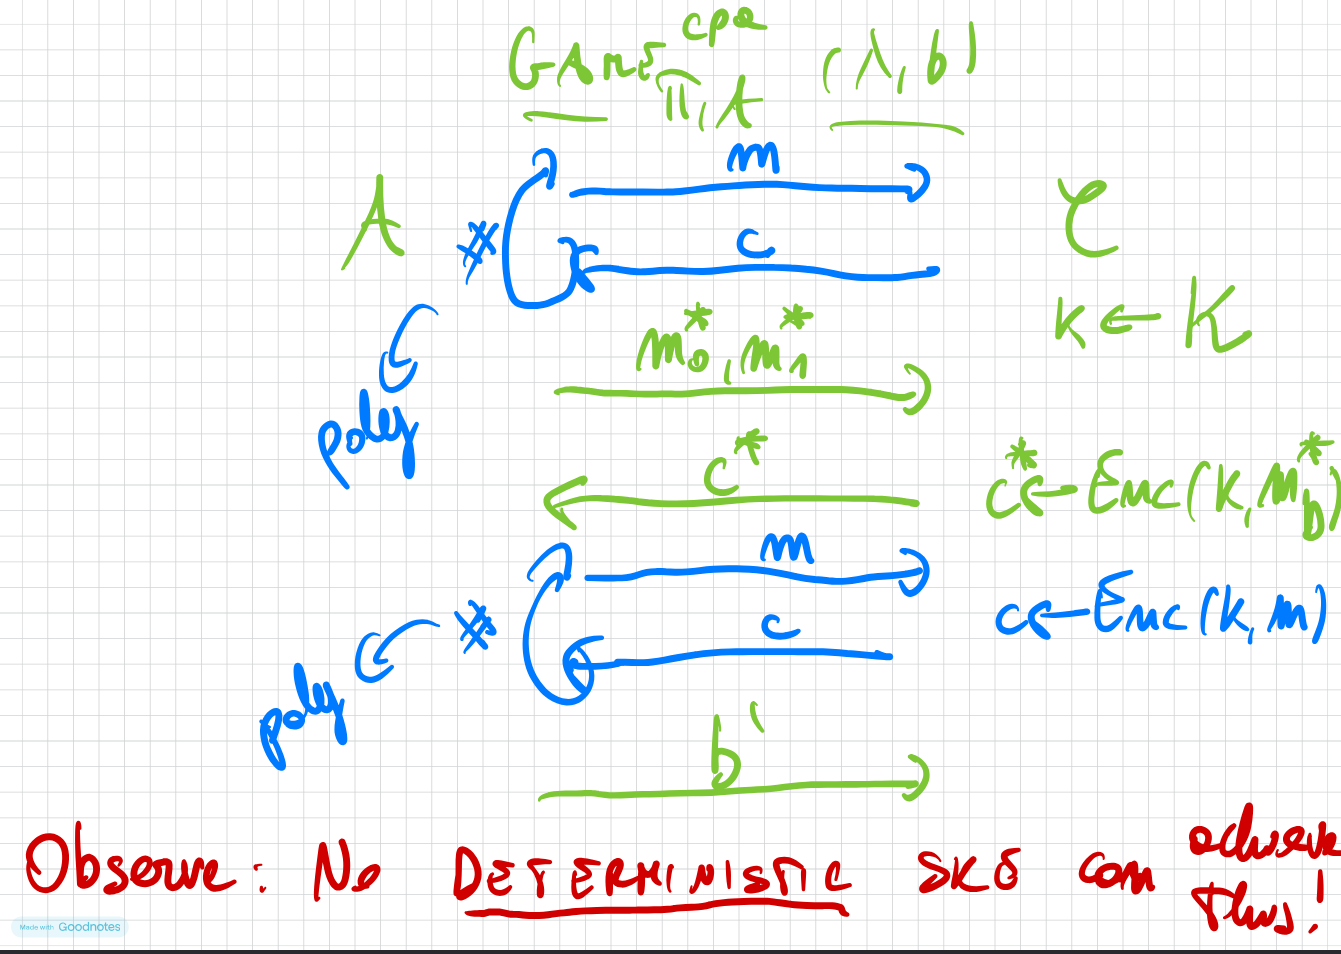 GAME^cpa_Π,A (λ, b)
m
A
C
#
c
k ← K
m₀*, m₁*
poly
c*
c* ← Enc(k, m_b*)
m
c ← Enc(k, m)
#
c
poly
b'
Observe: No DETERMINISTIC SKE can achieve this!
Made with Goodnotes